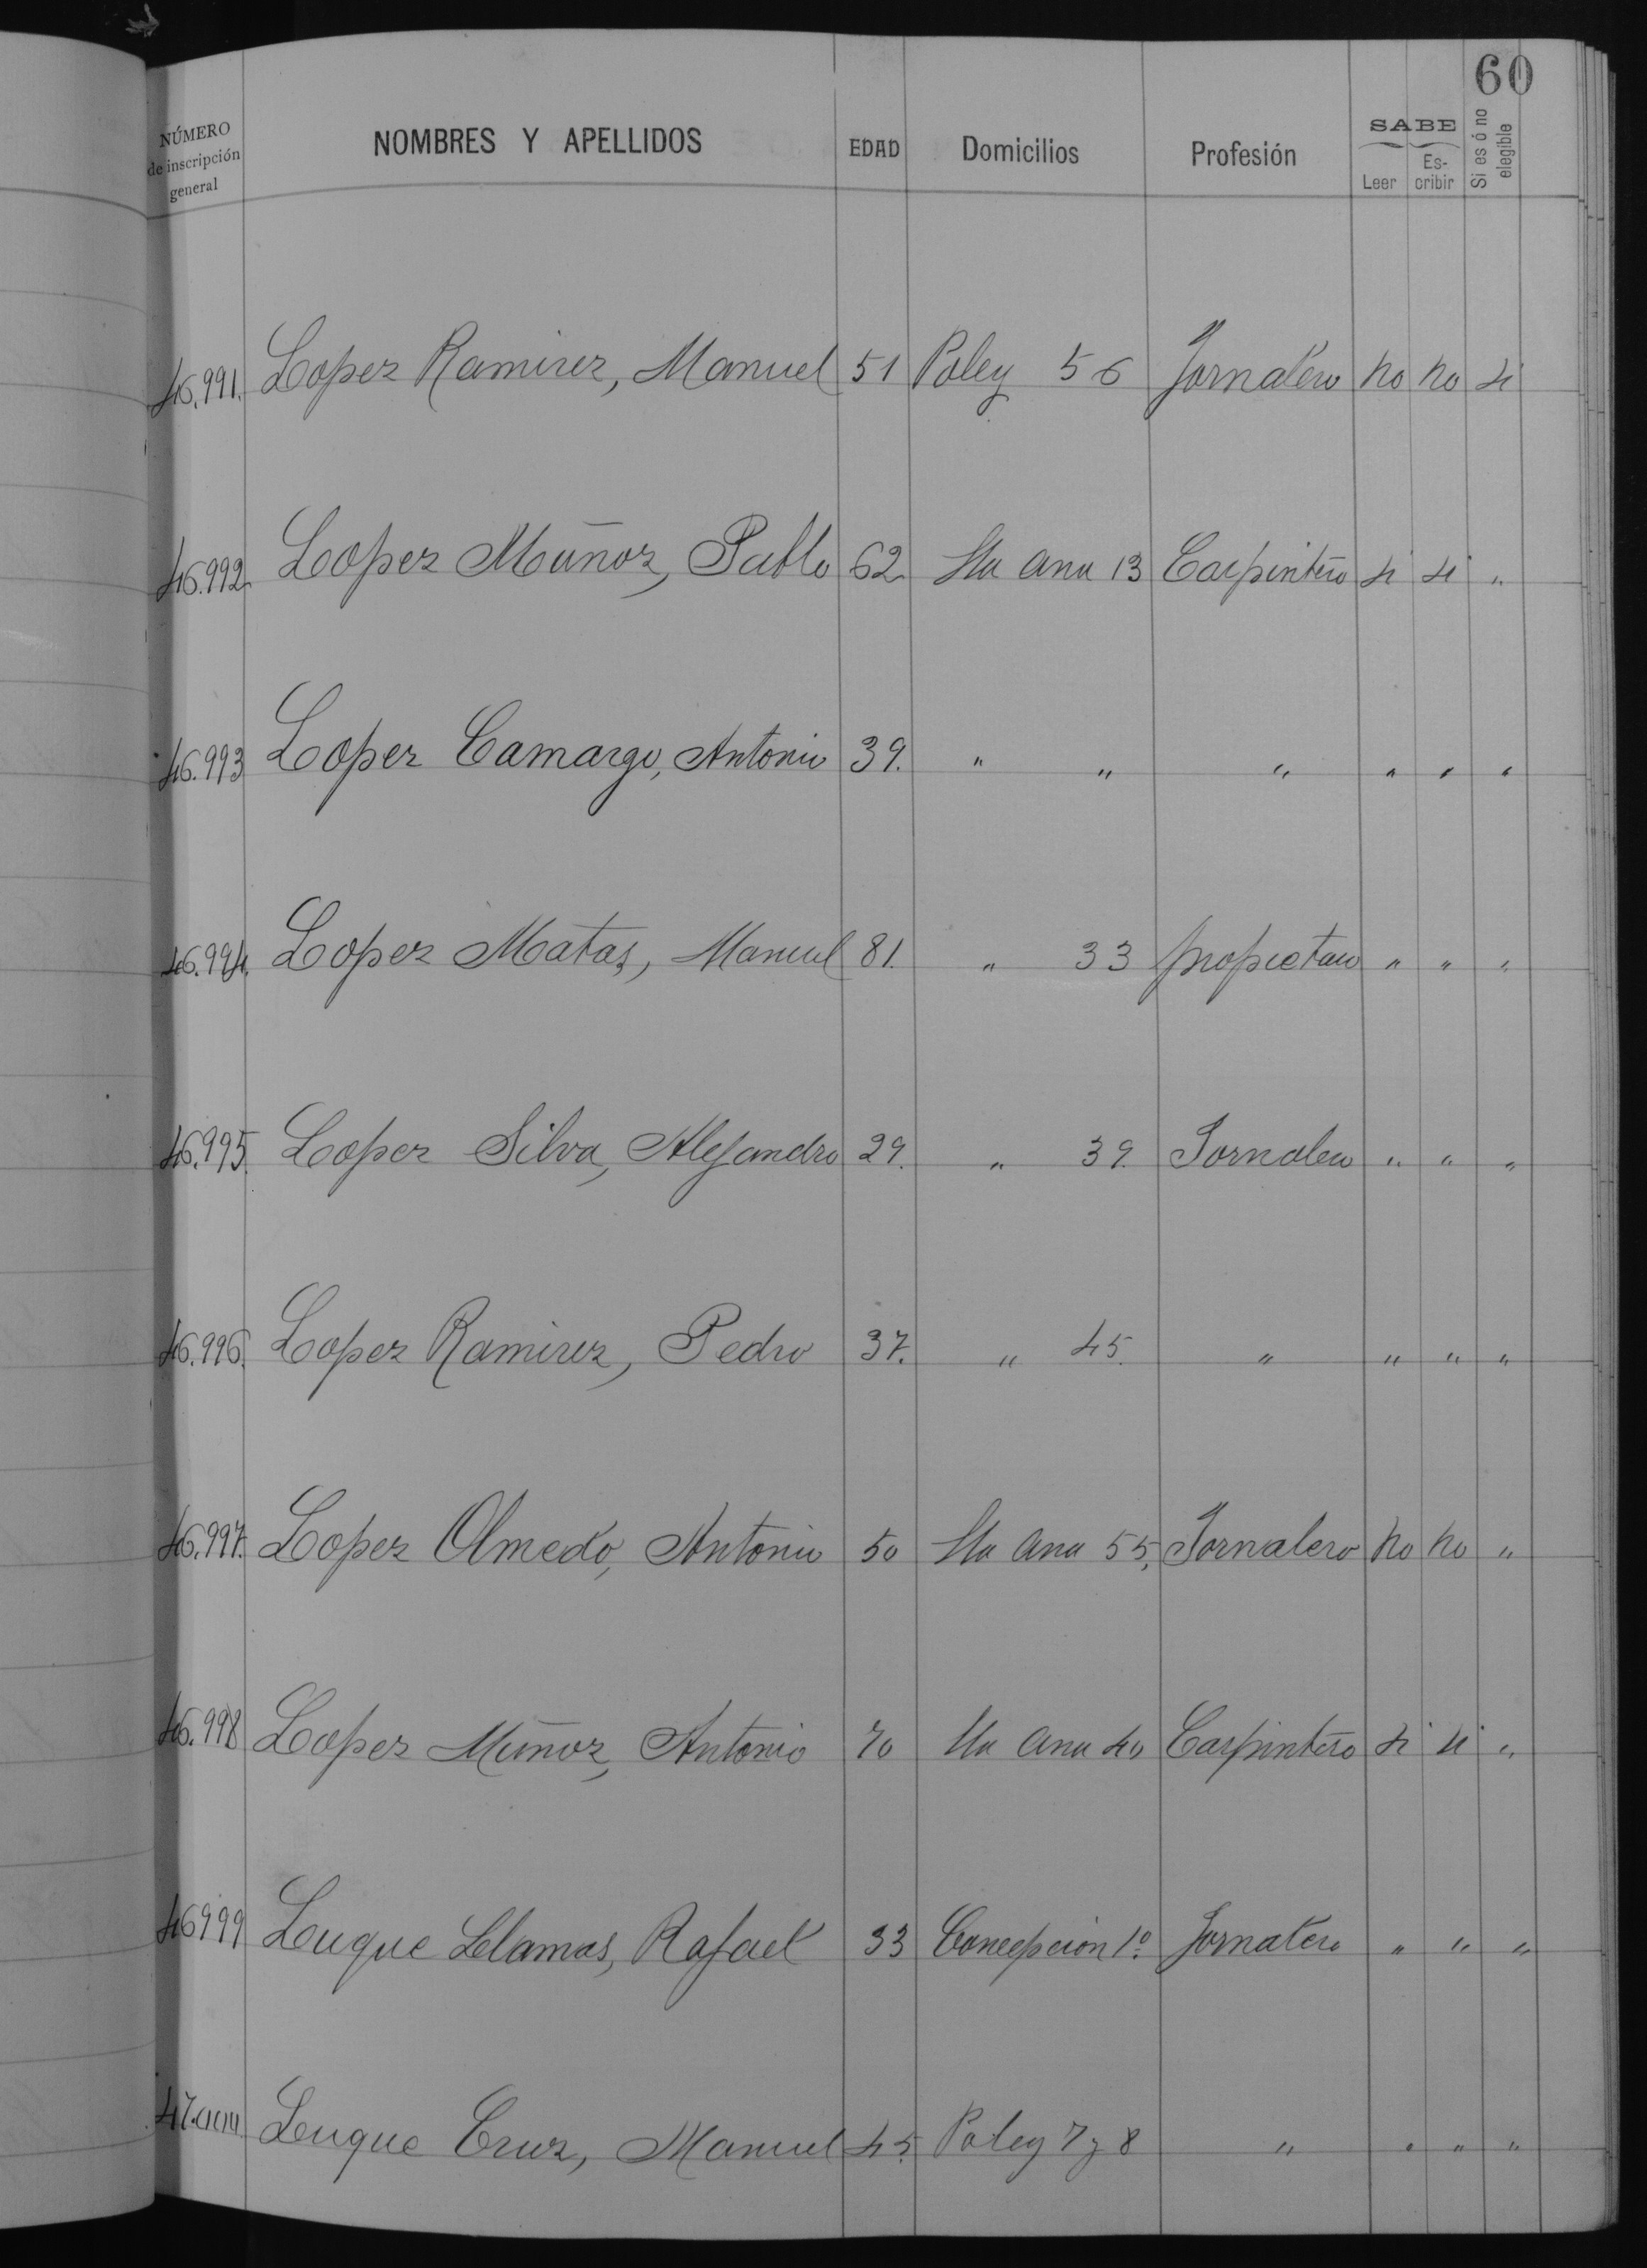 60
NÚMERO de inscripción general NOMBRES Y APELLIDOS EDAD Domicilios Profesión SABE Leer Es-cribir Si es ó no elegible
46.991. Lopez Ramirez, Manuel 51 Poley 56 Jornalero no no si
46.992. Lopez Muñoz, Pablo 62 Sta Ana 13 Carpintero si si "
46.993 Lopez Camargo, Antonio 39. " " " " " "
46.994. Lopez Matas, Manuel 81. " 33 propietario " " "
46.995. Lopez Silva, Alejandro 29. " 39. Jornalero " " "
46.996. Lopez Ramirez, Pedro 37. " 45. " " " "
46.997. Lopez Olmedo, Antonio 50 Sta Ana 55, Jornalero no no "
46.998 Lopez Muñoz, Antonio 70 Sta Ana 40 Carpintero si si "
46999 Luque Llamas, Rafael 33 Concepcion 1º Jornalero " " "
47.000. Luque Cruz, Manuel 45. Poley 7 y 8 " " " "